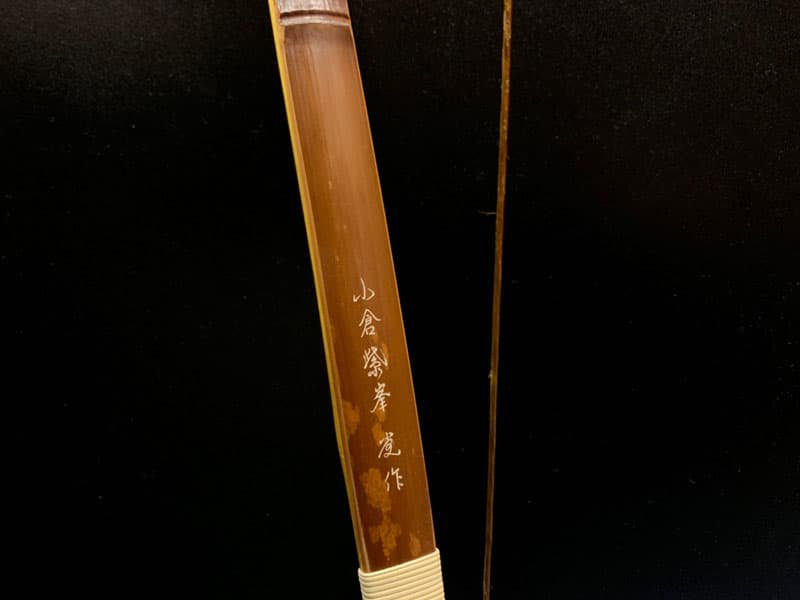 小倉紫峯覚作